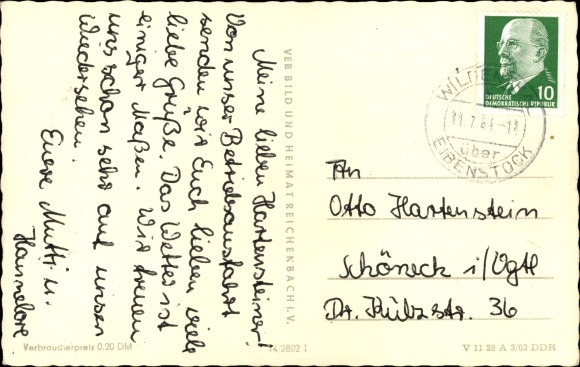 Meine lieben Hartensteiner!
Von unser Betriebsausfahrt
senden wir Euch lieben viele
liebe Grüße. Das Wetter ist
einiger Maßen. Wir freuen
uns schon sehr auf unser
Wiedersehen.
Euere Mutti u.
Hannelore
VEB BILD UND HEIMAT REICHENBACH I. V.
Verbraucherpreis 0,20 DM
14.2802 I
DEUTSCHE
DEMOKRATISCHE REPUBLIK
10
über
EIBENSTOCK
An
Otto Hartenstein
Schöneck i/Vgtl
Dr. Külzstr. 36
V 11 28 A 3/63 DDR